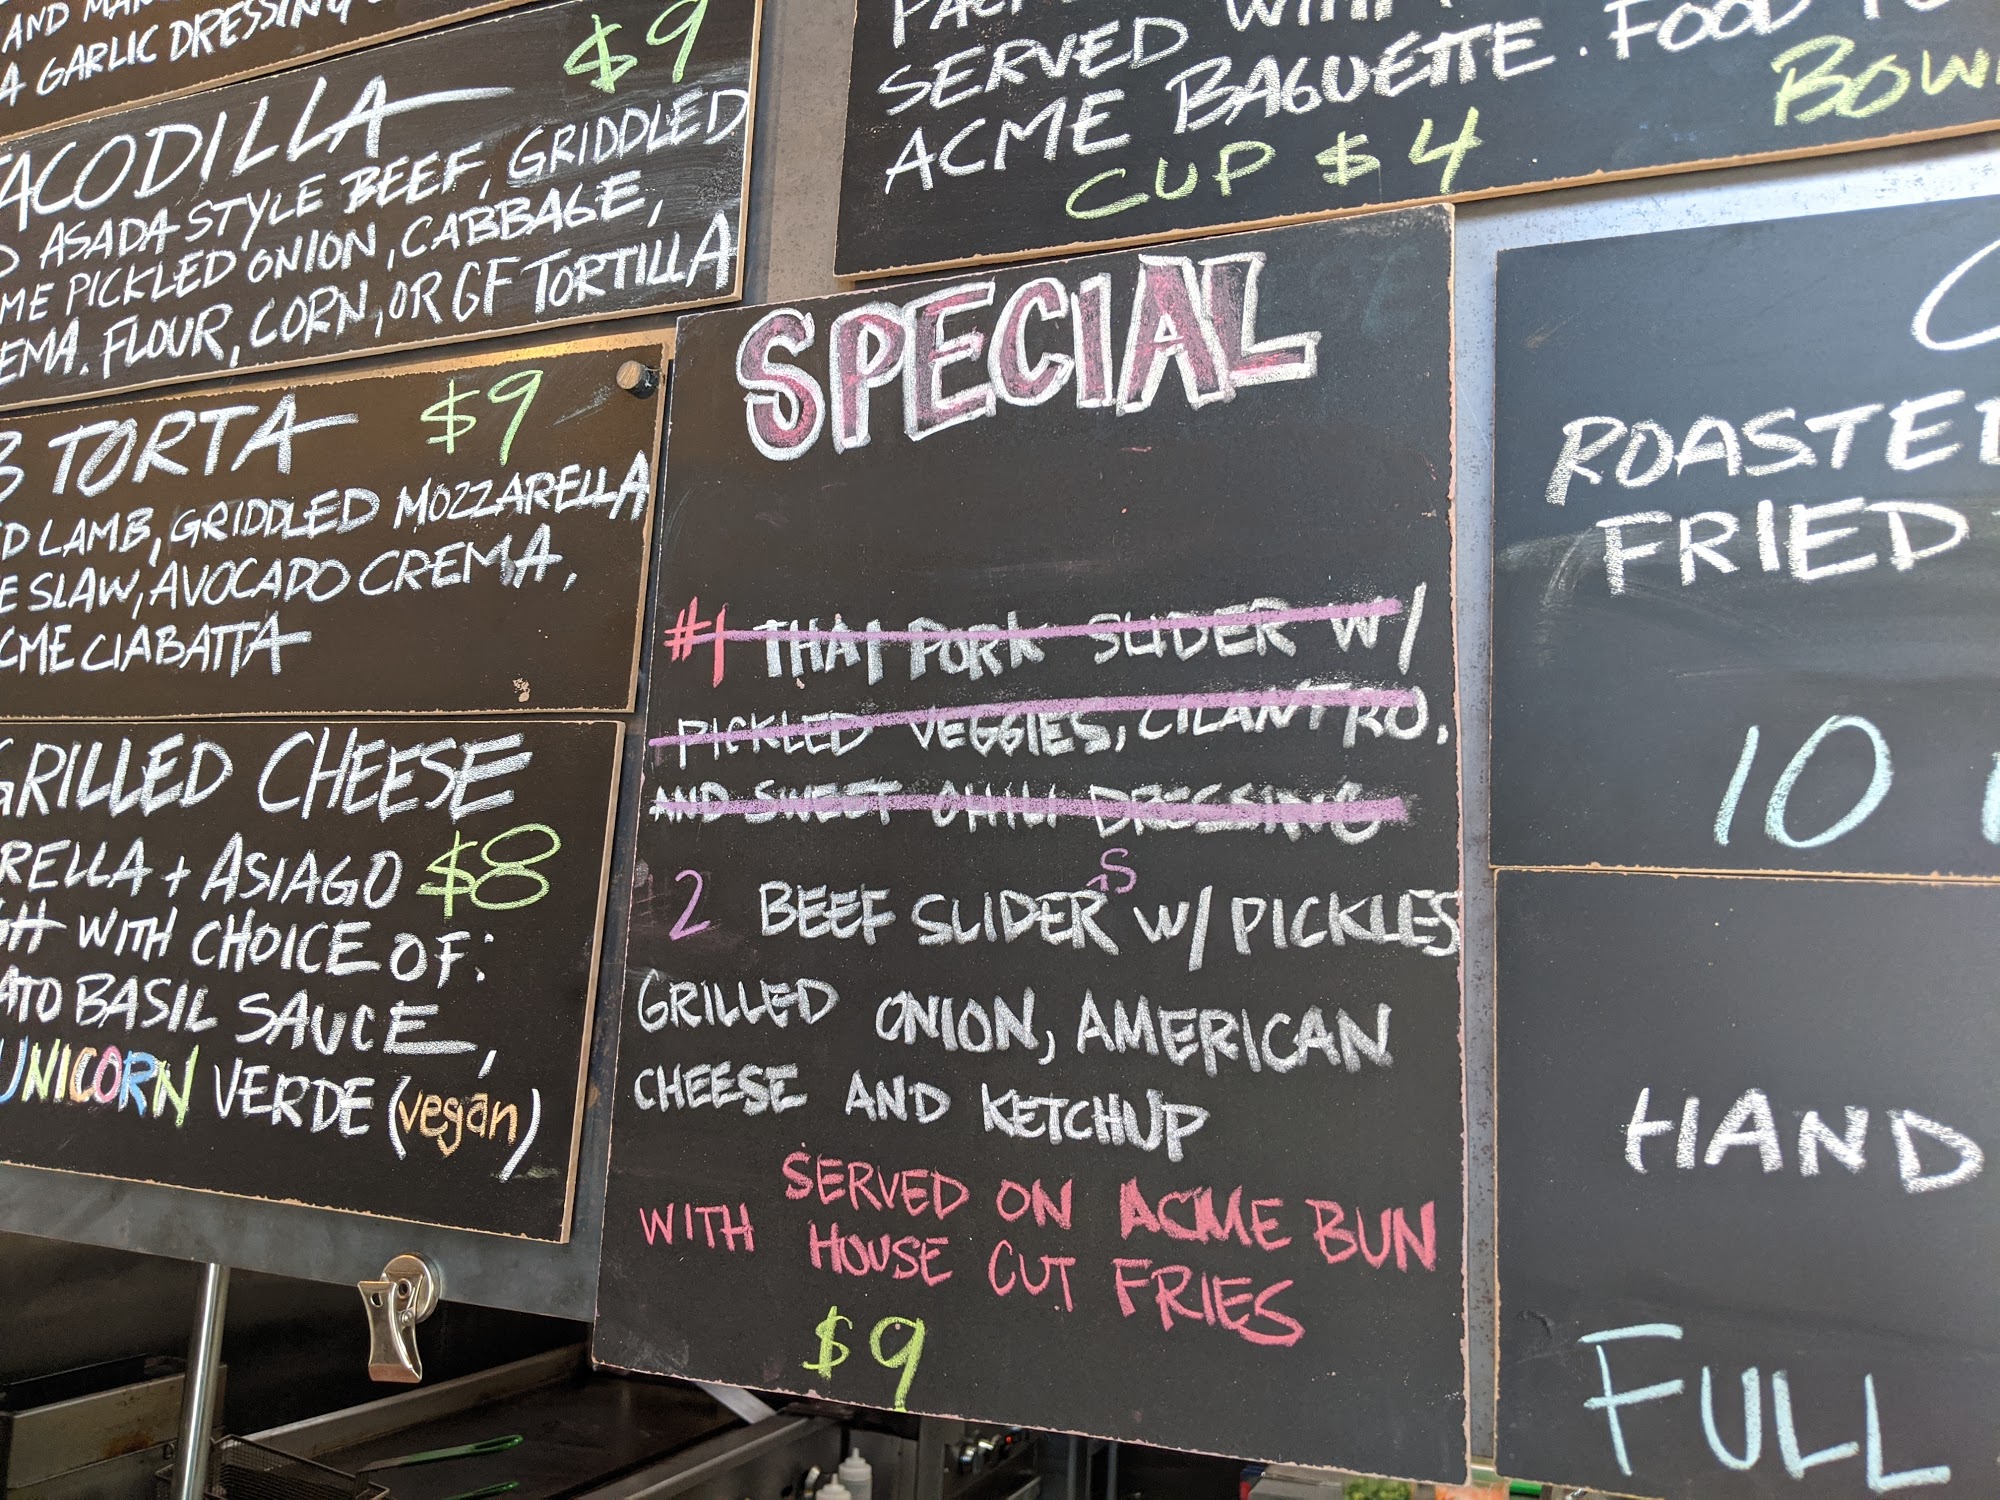 AND
A GARLIC DRESSING
TACODILLA $9
ASADA STYLE BEEF, GRIDDLED
PICKLED ONION, CABBAGE,
FLOUR, CORN, OR GF TORTILLA
TORTA $9
LAMB, GRIDDLED MOZZARELLA
SLAW, AVOCADO CREMA,
ACME CIABATTA
GRILLED CHEESE
+ ASIAGO $8
WITH CHOICE OF:
BASIL SAUCE,
UNICORN VERDE (vegan)
SERVED WITH
ACME BAGUETTE. FOOD
CUP $4
SPECIAL
#1 THAI PORK SLIDER W/
PICKLED VEGGIES, CILANTRO,
AND SWEET CHILI DRESSING
2 BEEF SLIDERS W/ PICKLES
GRILLED ONION, AMERICAN
CHEESE AND KETCHUP
SERVED ON ACME BUN
WITH HOUSE CUT FRIES
$9
ROASTED
FRIED
10
HAND
FULL